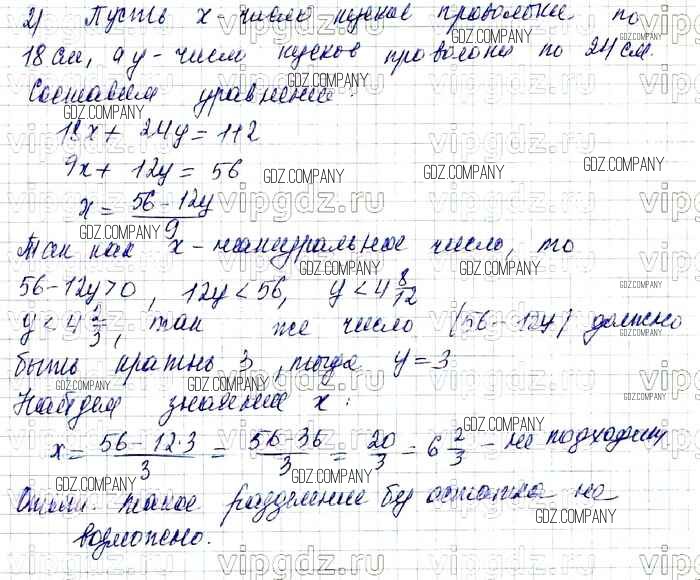 2) Пусть x - число кусков проволоки по
18 см, а y - число кусков проволоки по 24 см.
Составим уравнение:
18x + 24y = 112
9x + 12y = 56
x = (56 - 12y)/9
Так как x - натуральное число, то
56 - 12y > 0, 12y < 56, y < 4 8/12
y < 4 2/3, так же число (56 - 12y) должно
быть кратно 3, тогда y = 3
Найдем значение x:
x = (56 - 12·3)/3 = (56 - 36)/3 = 20/3 = 6 2/3 - не подходит
Ответ: такое разделение без остатка не
возможно.
GDZ.COMPANY
vipgdz.ru